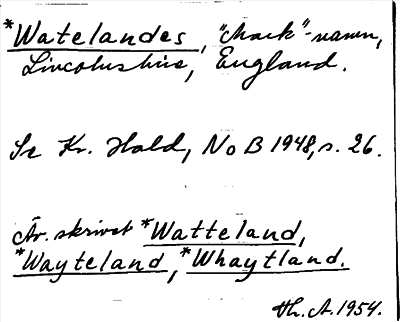 *Watelandes, "Mark"-navn,
Lincolnshire, England.
Se Kr. Hald, NoB 1948, s. 26.
Är. skrivet *Watteland,
*Wayteland, *Whaytland.
Th. A. 1954.